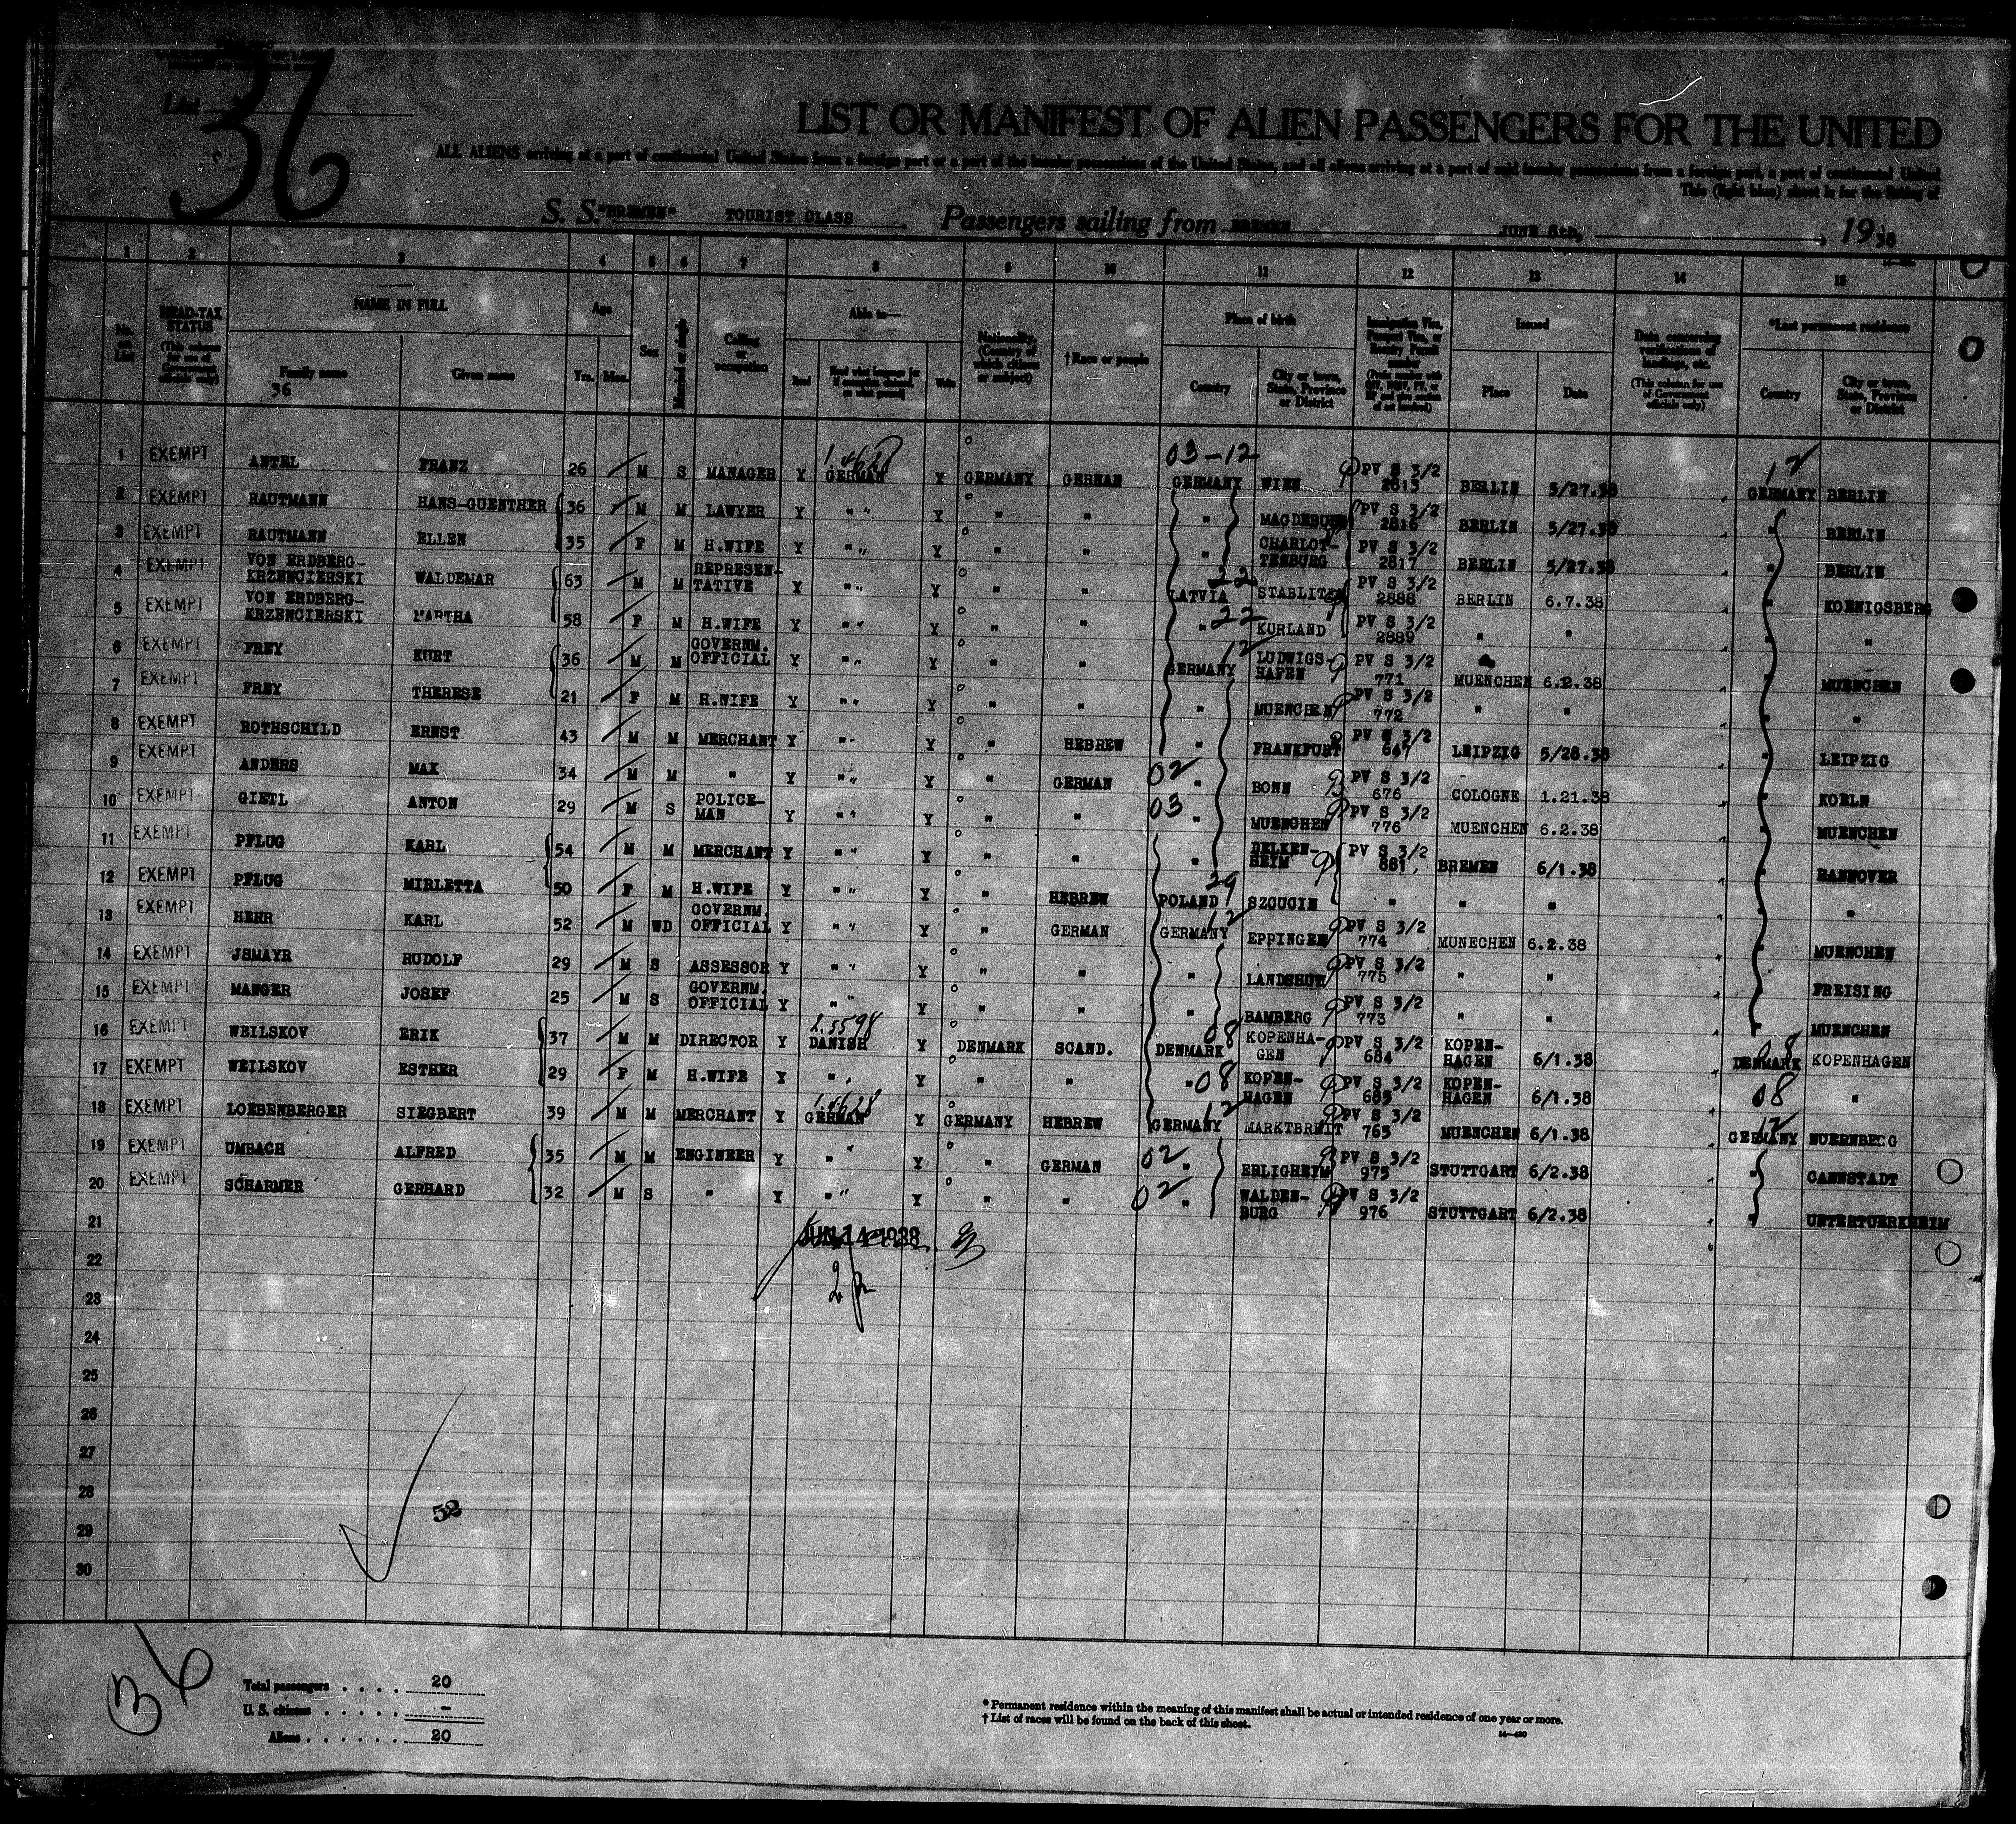 36
List
LIST OR MANIFEST OF ALIEN PASSENGERS FOR THE UNITED
ALL ALIENS arriving at a port of continental United States from a foreign port or a port of the insular possessions of the United States, and all aliens arriving at a port of said insular possessions from a foreign port, a port of continental United
This (light blue) sheet is for the listing of
S. S. "BREMEN" TOURIST CLASS Passengers sailing from BREMEN JUNE 8th, 1938
1 2 3 4 5 6 7 8 9 10 11 12 13 14 15
No. on List HEAD-TAX STATUS (This column for use of Government officials only) NAME IN FULL Family name Given name Age Yrs. Mos. Sex Married or single Calling or occupation Able to— Read Read what language [or if exemption claimed, on what ground] Write Nationality. (Country of which citizen or subject) † Race or people Place of birth Country City or town, State, Province or District Issued Place Date (This column for use of Government officials only) *Last permanent residence Country City or town, State, Province or District
36
03-12 12
1 EXEMPT ANTEL FRANZ 26 M S MANAGER Y GERMAN Y GERMANY GERMAN GERMANY WIEN PV S 3/2 2815 BERLIN 5/27.38 GERMANY BERLIN
2 EXEMPT RAUTMANN HANS-GUENTHER 36 M M LAWYER Y " " Y " " " MAGDEBURG PV S 3/2 2816 BERLIN 5/27.38 " BERLIN
3 EXEMPT RAUTMANN ELLEN 35 F M H.WIFE Y " " Y " " " CHARLOT-TENBURG PV S 3/2 2817 BERLIN 5/27.38 " BERLIN
4 EXEMPT VON ERDBERG-KRZENCIERSKI WALDEMAR 63 M M REPRESEN-TATIVE Y " " Y " " LATVIA 22 STABLITEN PV S 3/2 2888 BERLIN 6.7.38 " KOENIGSBERG
5 EXEMPT VON ERDBERG-KRZENCIERSKI MARTHA 58 F M H.WIFE Y " " Y " " " 22 KURLAND PV S 3/2 2889 " " " "
6 EXEMPT FREY KURT 36 M M GOVERNM. OFFICIAL Y " " Y " " GERMANY 12 LUDWIGS-HAFEN PV S 3/2 771 MUENCHEN 6.2.38 " MUENCHEN
7 EXEMPT FREY THERESE 21 F M H.WIFE Y " " Y " " " MUENCHEN PV S 3/2 772 " " " "
8 EXEMPT ROTHSCHILD ERNST 43 M M MERCHANT Y " " Y " HEBREW " FRANKFURT PV S 3/2 647 LEIPZIG 5/28.38 " LEIPZIG
9 EXEMPT ANDERS MAX 34 M M " Y " " Y " GERMAN 02 " BONN PV S 3/2 676 COLOGNE 1.21.38 " KOELN
10 EXEMPT GIETL ANTON 29 M S POLICE-MAN Y " " Y " " 03 " MUENCHEN PV S 3/2 776 MUENCHEN 6.2.38 " MUENCHEN
11 EXEMPT PFLUG KARL 54 M M MERCHANT Y " " Y " " " DELKEN-HEIM PV S 3/2 881 BREMEN 6/1.38 " HANNOVER
12 EXEMPT PFLUG MIRLETTA 50 F M H.WIFE Y " " Y " HEBREW POLAND 29 SZCUCIN " " " " "
13 EXEMPT HERR KARL 52 M WD GOVERNM. OFFICIAL Y " " Y " GERMAN GERMANY 12 EPPINGEN PV S 3/2 774 MUNECHEN 6.2.38 " MUENCHEN
14 EXEMPT JSMAYR RUDOLF 29 M S ASSESSOR Y " " Y " " " LANDSHUT PV S 3/2 775 " " " FREISING
15 EXEMPT MANGER JOSEF 25 M S GOVERNM. OFFICIAL Y " " Y " " " BAMBERG PV S 3/2 773 " " " MUENCHEN
16 EXEMPT WEILSKOV ERIK 37 M M DIRECTOR Y DANISH Y DENMARK SCAND. DENMARK 08 KOPENHA-GEN PV S 3/2 684 KOPEN-HAGEN 6/1.38 DENMARK 08 KOPENHAGEN
17 EXEMPT WEILSKOV ESTHER 29 F M H.WIFE Y " " Y " " " 08 KOPEN-HAGEN PV S 3/2 685 KOPEN-HAGEN 6/1.38 08 "
18 EXEMPT LOEBENBERGER SIEGBERT 39 M M MERCHANT Y GERMAN Y GERMANY HEBREW GERMANY 12 MARKTBREIT PV S 3/2 765 MUENCHEN 6/1.38 GERMANY 12 NUERNBERG
19 EXEMPT UMBACH ALFRED 35 M M ENGINEER Y " " Y " GERMAN 02 " ERLIGHEIM PV S 3/2 975 STUTTGART 6/2.38 " CANNSTADT
20 EXEMPT SCHARMER GERHARD 32 M S " Y " " Y " " 02 " WALDEN-BURG PV S 3/2 976 STUTTGART 6/2.38 " UNTERTUERKHEIM
21 JUN 14 1938
22
23
24
25
26
27
28
52
29
30
36
Total passengers . . . . 20
U. S. citizens . . . . . -
Aliens . . . . . . 20
* Permanent residence within the meaning of this manifest shall be actual or intended residence of one year or more.
† List of races will be found on the back of this sheet.